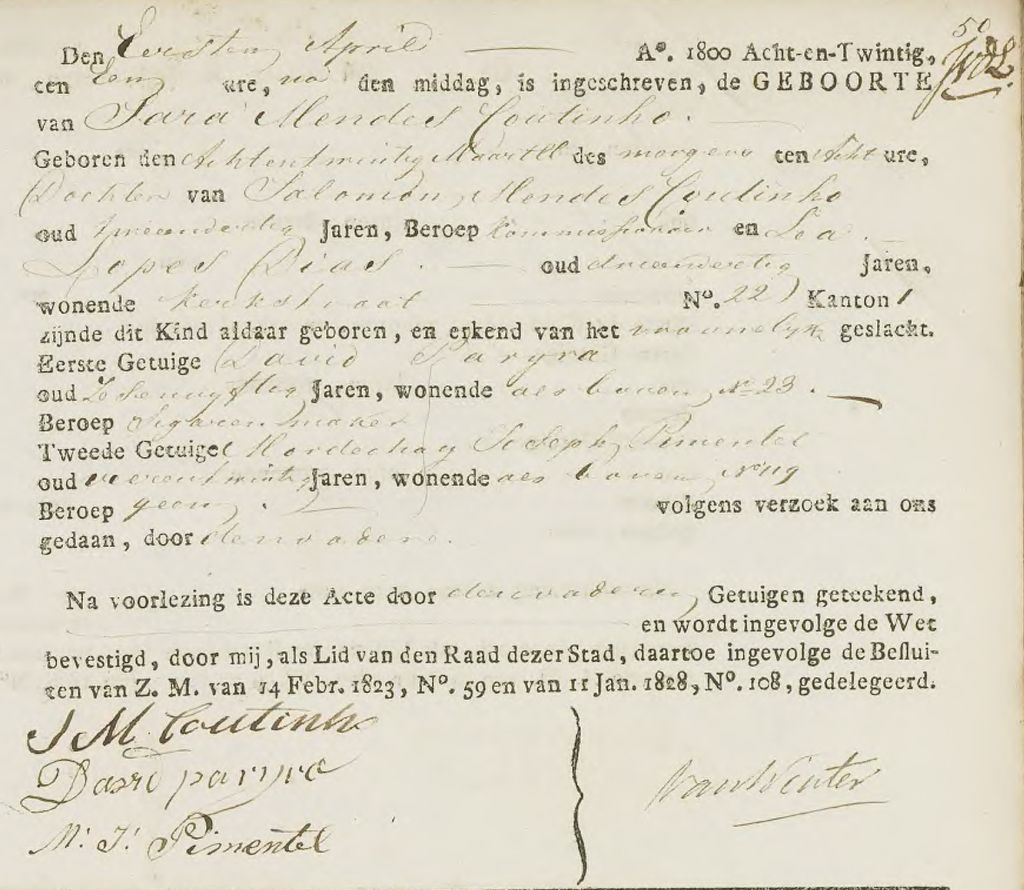 50
Den Eersten April A°. 1800 Acht-en-Twintig,
ten Een ure, na den middag, is ingeschreven, de GEBOORTE
van Sara Mendes Coutinho.
Geboren den Achtentwintig Maart ll des morgens ten Acht ure,
Dochter van Salomon Mendes Coutinho
oud tweeendertig Jaren, Beroep kommissionair en Lea
Lopes Dias. oud drieendertig Jaren,
wonende Kerkstraat N°. 22 Kanton 1
zijnde dit Kind aldaar geboren, en erkend van het vrouwelyk geslacht.
Eerste Getuige David Paryra
oud Zesenvyftig Jaren, wonende als boven N° 23.
Beroep Sigarenmaker
Tweede Getuige Mordechay Joseph Pimentel
oud Jaren, wonende als boven N° 119
Beroep geen. volgens verzoek aan ons
gedaan, door den vader.
Na voorlezing is deze Acte door den vader en Getuigen geteekend,
en wordt ingevolge de Wet
bevestigd, door mij, als Lid van den Raad dezer Stad, daartoe ingevolge de Beslui-
ten van Z. M. van 14 Febr. 1823, N°. 59 en van 11 Jan. 1828, N°. 108, gedelegeerd.
S M Coutinho
David paryra
M: J: Pimentel
van Winter